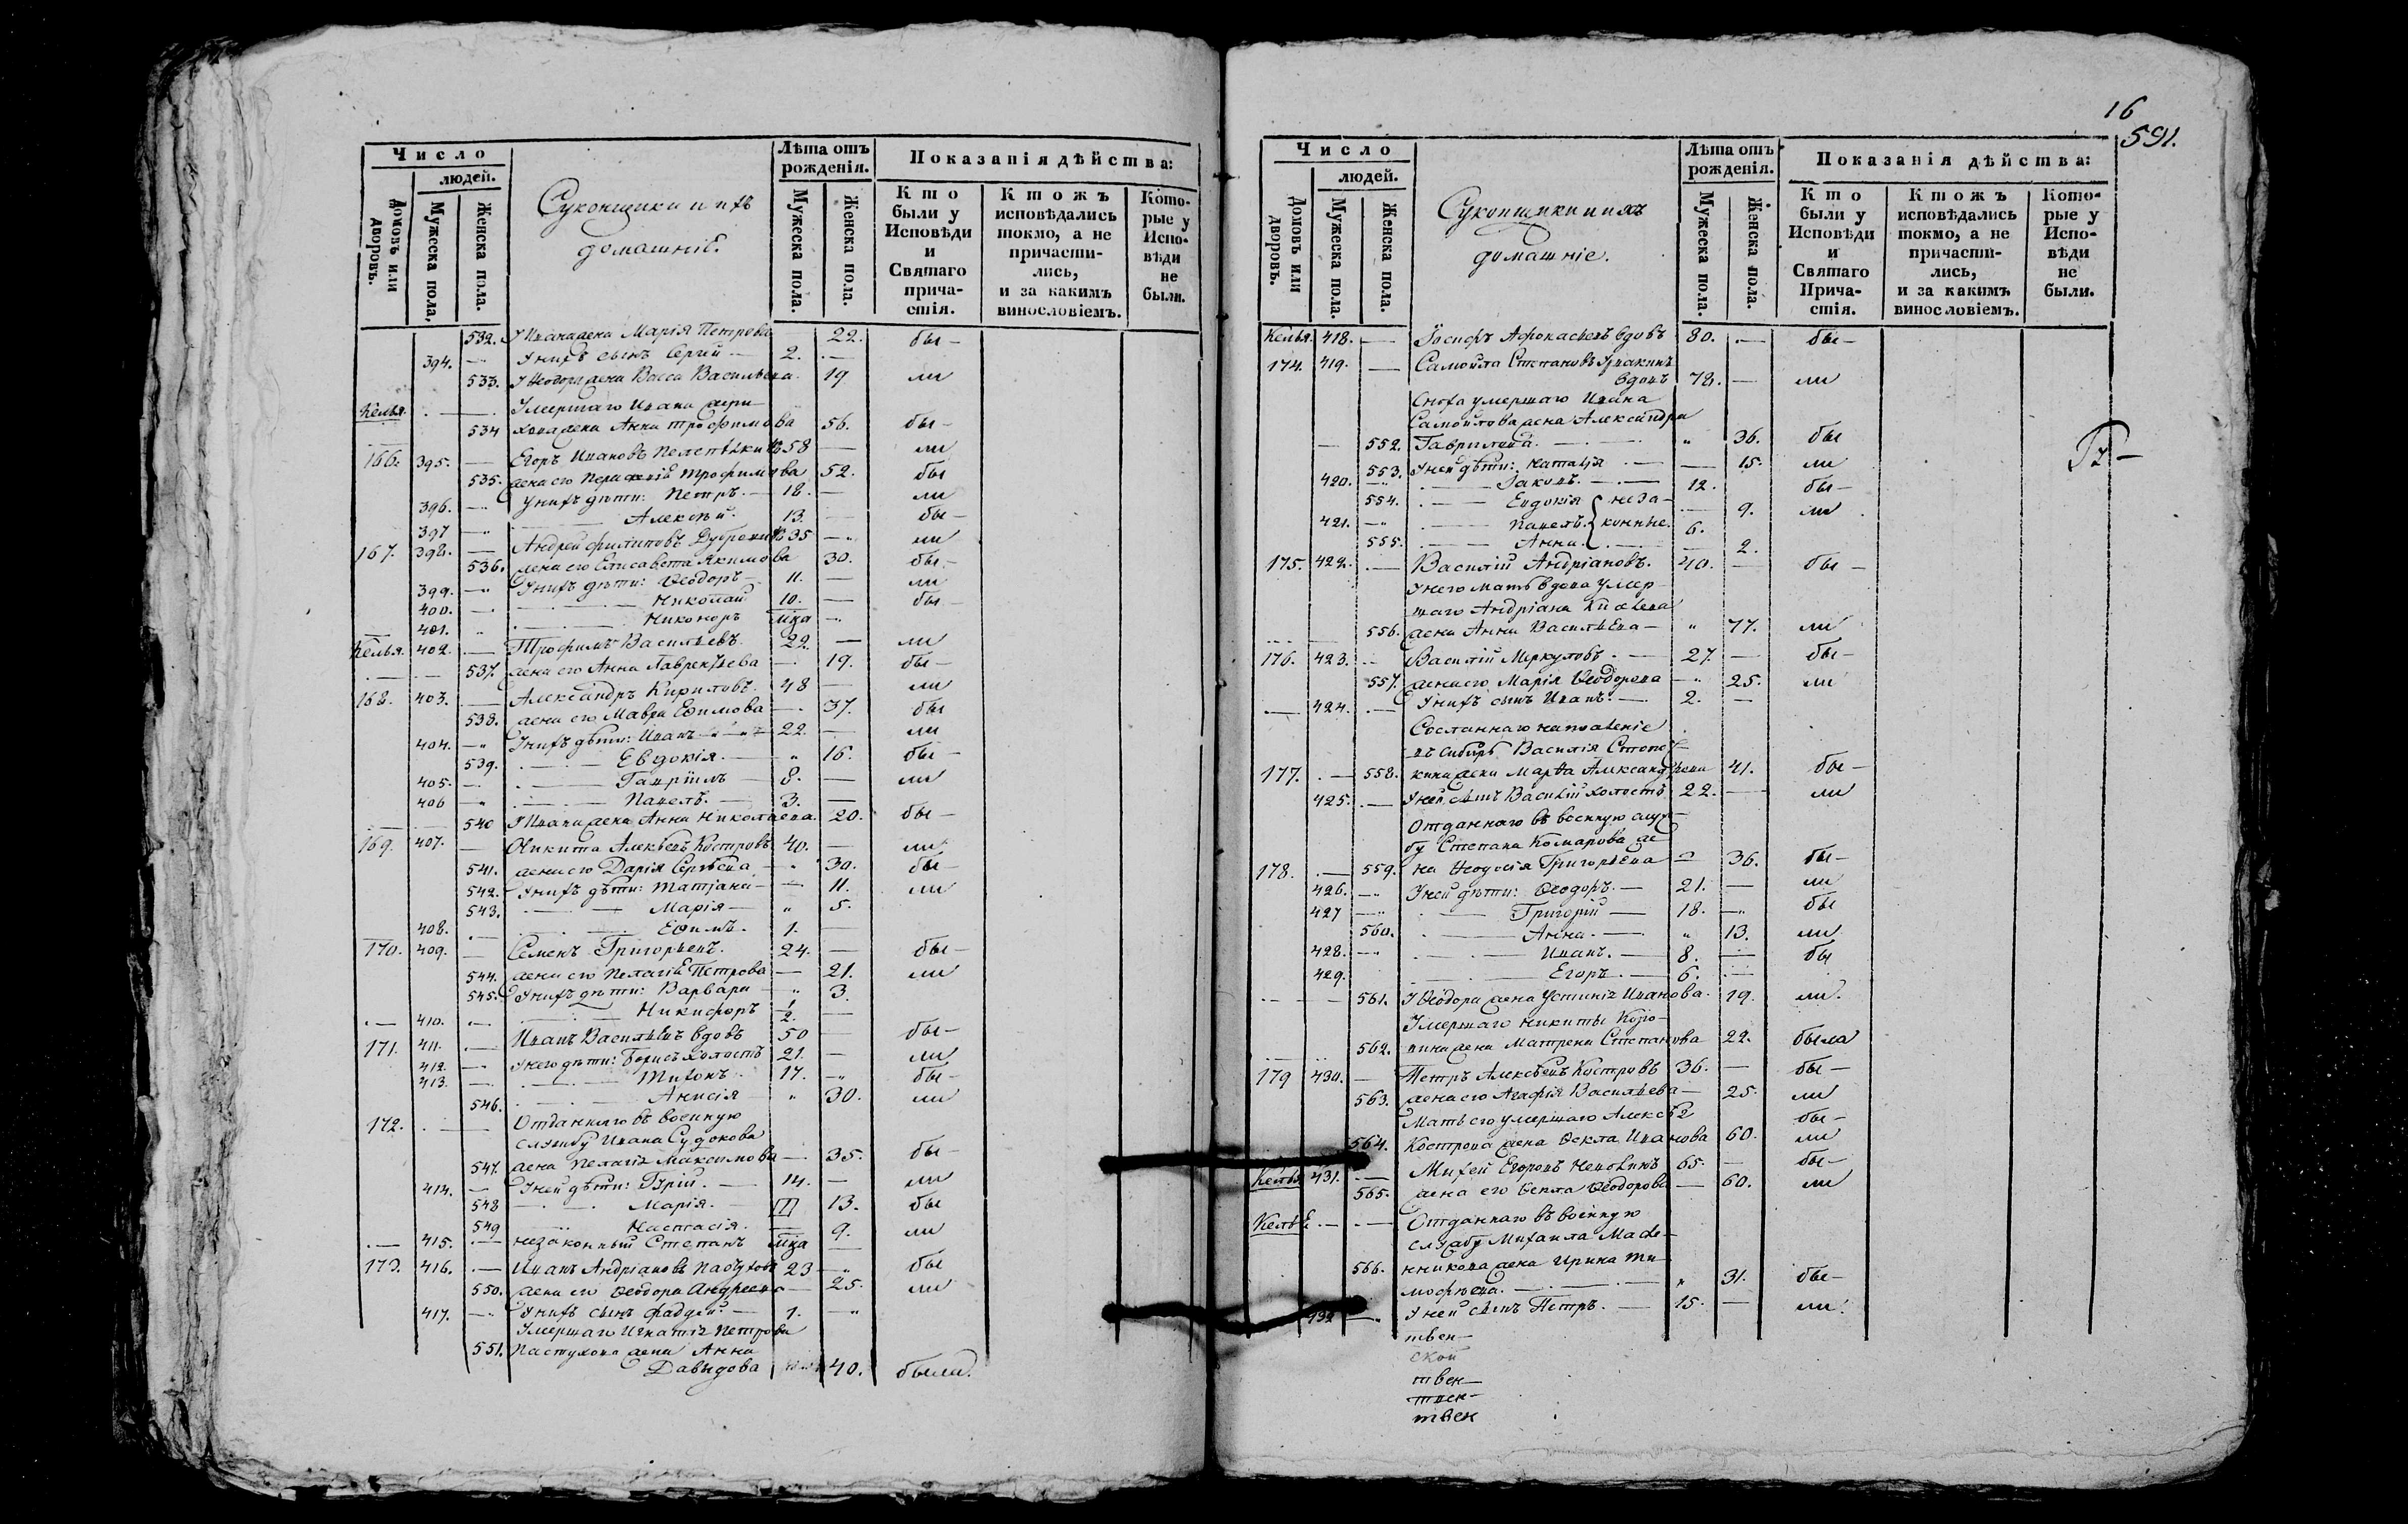 Число
людей.
Домовъ или дворовъ.
Мужеска пола.
Женска пола.
Суконщики и ихъ
домашніе.
Лѣта отъ рожденія.
Мужеска пола.
Женска пола.
Показанія дѣйства:
Кто были у Исповѣди и Святаго причастія.
Ктожъ исповѣдались токмо, а не причастились, и за какимъ винословіемъ.
Которые у Исповѣди не были.
532. У Ивана жена Марія Петрова 22. бы-
394. У нихъ сынъ Сергей 2.
533. У Ѳеодора жена Васса Васильева 19 ли
Келья. Умершаго Ивана
534 жена Анна Трофимова 56. бы-
166. 395. Егоръ Ивановъ 58 ли
535. жена его Трофимова 52. бы
396. У нихъ дѣти: Петръ. 18. ли
397 Алексѣй. 13. бы-
167. 398. Андрей Филиповъ 35 ли
536. жена его Елисавета Якимова 30. бы-
399. У нихъ дѣти: Ѳеодоръ 11. ли
400. Николай 10. бы
401. Никоноръ
Келья. 402. Трофимъ Васильевъ. 22. ли
537. жена его Анна Лаврентьева 19. бы-
168. 403. Александръ Кириловъ. 48 ли
538. жена его Мавра Ефимова 37. бы
404. У нихъ дѣти: Иванъ 22. ли
539. Евдокія. 16. бы-
405. Гавріилъ 8. ли
406 Павелъ. 3.
540 У Ивана жена Анна Николаева. 20. бы-
169. 407. Никита Алексѣевъ Костровъ 40. ли
541. жена его Дарія Сергѣева 30. бы-
542. У нихъ дѣти: Татіана 11. ли
543. Марія 5.
408. Ефимъ. 1.
170. 409. Семенъ Григорьевъ. 24. бы-
544. жена его Пелагія Петрова 21. ли
545. У нихъ дѣти: Варвара 3.
410. Никифоръ 1/2.
171. 411. Иванъ Васильевъ вдовъ 50 бы-
412. У него дѣти: Борисъ холостъ 21. ли
413. Тихонъ 17. бы-
546. Анисія 30. ли
172. Отданнаго въ военную
службу Ивана Судокова
547. жена Пелагія Максимова 35. бы-
414. У ней дѣти: Гурій. 14. ли
548 Марія. 13. бы
549 Настасія. 9. ли
415. незаконный Степанъ
173. 416. Иванъ Андріановъ 23 бы
550. жена его Ѳеодора Андреева 25. ли
417. У нихъ сынъ Фаддей. 1.
Умершаго Игнатія Петрова
551. Пастухова жена Анна
Давыдова 40. были.
16
591.
Число
людей.
Домовъ или дворовъ.
Мужеска пола.
Женска пола.
Суконщики и ихъ
домашніе.
Лѣта отъ рожденія.
Мужеска пола.
Женска пола.
Показанія дѣйства:
Кто были у Исповѣди и Святаго Причастія.
Ктожъ исповѣдались токмо, а не причастились, и за какимъ винословіемъ.
Которые у Исповѣди не были.
Келья. 418. Іосифъ вдовъ 80. бы-
174. 419. Самойла Степановъ
вдовъ 78. ли
Сноха умершаго Ивана
Самойлова жена Александра
552. Гаврилова. 36. бы
553. У ней дѣти: Наталія 15. ли
420. Іаковъ. 12. бы-
554. Евдокія неза- 9. ли
421. Павелъ. конные. 6.
555. Анна. 2.
175. 422. Василій Андріановъ. 40. бы-
У него мать вдова умер-
шаго Андріана
556. жена Анна Васильева 77. ли
176. 423. Василій Меркуловъ. 27. бы-
557. жена его Марія Ѳеодорова 25. ли
424. У нихъ сынъ Иванъ. 2.
Сосланнаго на поселеніе
въ Сибирь Василія
177. 558. жена Марѳа Александрова 41. бы-
425. У ней сынъ Василій холостъ 22. ли
Отданнаго въ военную служ-
бу Степана Комарова же-
178. 559. на Ѳеодосія Григорьева 36. бы-
426. У ней дѣти: Ѳеодоръ. 21. ли
427 Григорій 18. бы
560. Анна. 13. ли
428. Иванъ. 8. бы
429. Егоръ. 6.
561. У Ѳеодора жена Устинія Иванова. 19. ли.
Умершаго Никиты
562. жена Матрена Степанова 22. была
179 430. Петръ Алексѣевъ Костровъ 36. бы-
563. жена его Агафія Васильева 25. ли
Мать его умершаго Алексѣя бы-
564. Кострова жена Ѳекла Иванова 60. ли
Келья 431. Михей Егоровъ 65. бы-
565. жена его Ѳекла Ѳеодорова 60. ли
Келья Отданнаго въ военную
службу Михаила
566. жена Ирина Ти-
моѳеева. 31. бы-
432 У ней сынъ Петръ. 15. ли.
твен-
ской
твен-
твен-
твен